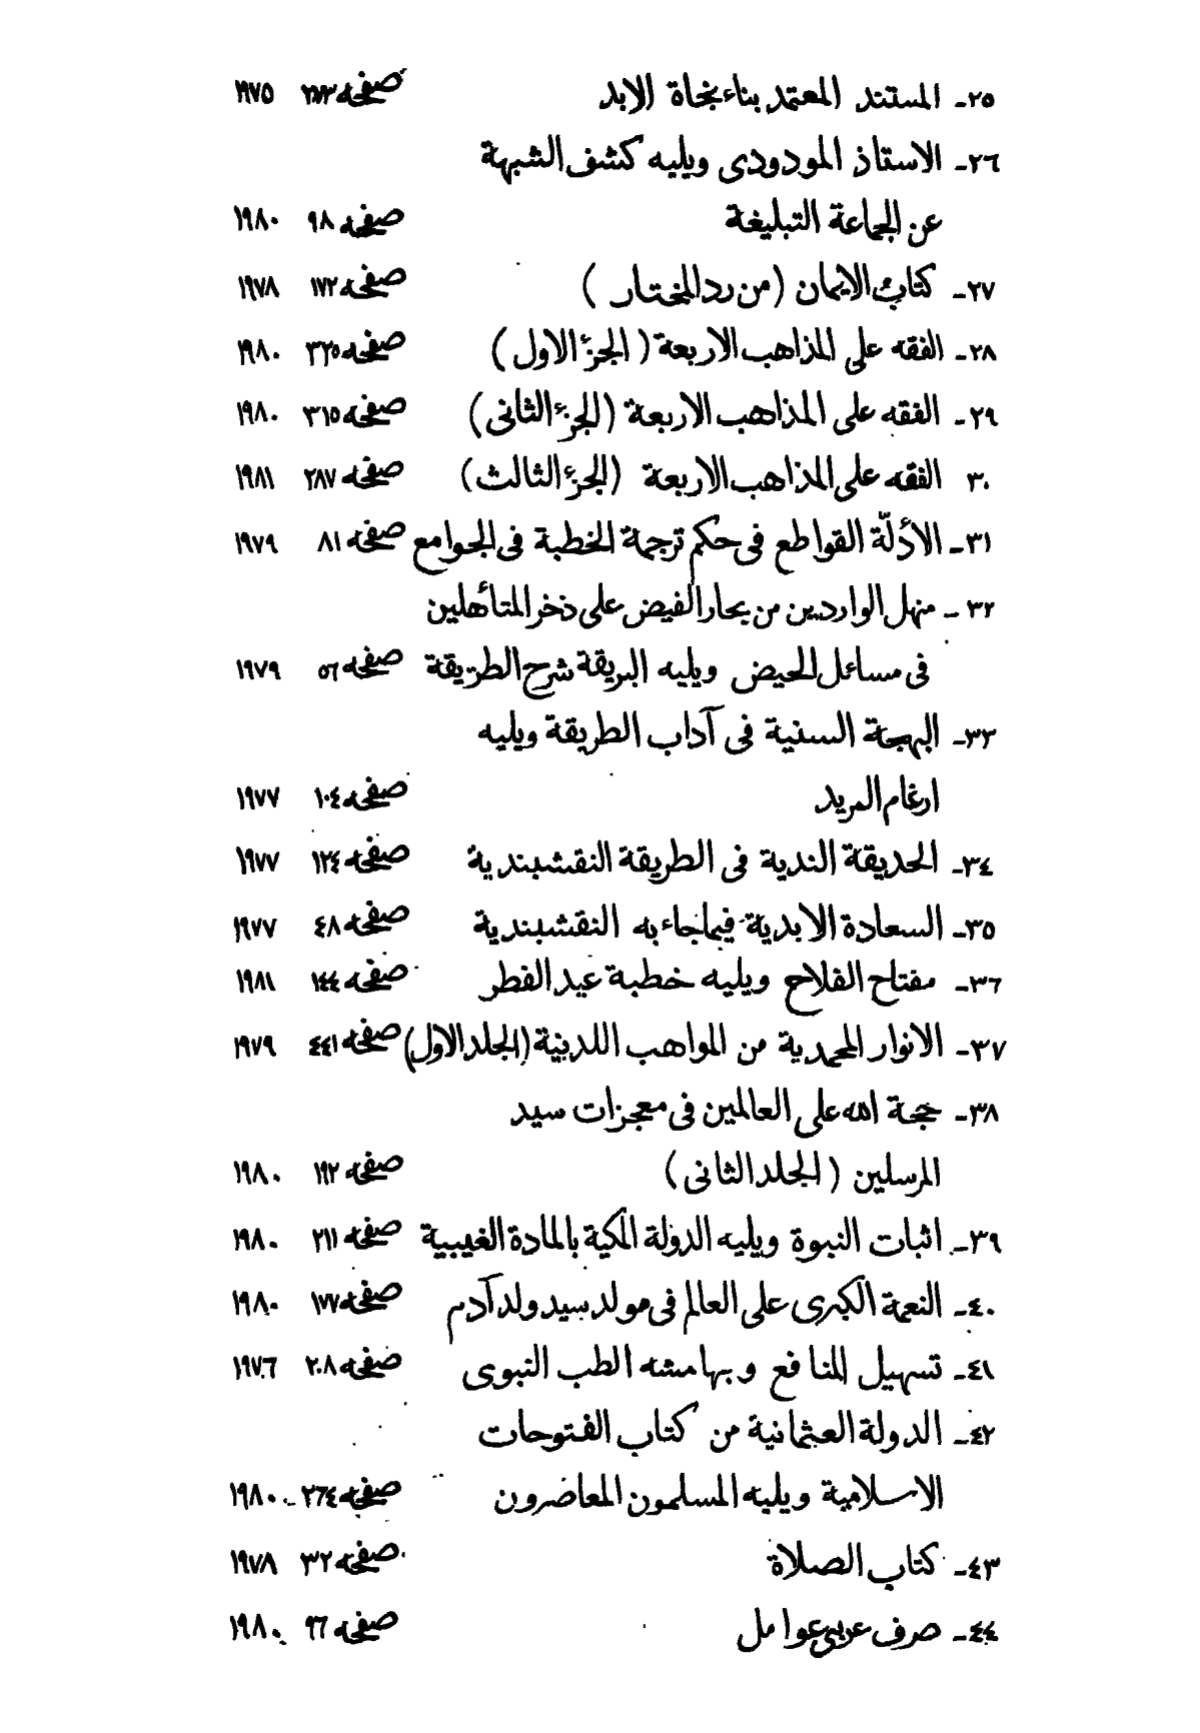 ٢٥ـ المستند المعتمد بناء نجاة الابد صفحه ٢٧٣ ١٩٧٥
٢٦ـ الاستاذ المودودى ويليه كشف الشبهة
عن الجماعة التبليغة صفحه ٩٨ ١٩٨٠
٢٧ـ كتاب الايمان (من رد المختار) صفحه ١٧٢ ١٩٧٨
٢٨ـ الفقه على المذاهب الاربعة (الجزء الاول) صفحه ٣٢٥ ١٩٨٠
٢٩ـ الفقه على المذاهب الاربعة (الجزء الثانى) صفحه ٣١٥ ١٩٨٠
٣٠ الفقه على المذاهب الاربعة (الجزء الثالث) صفحه ٢٨٧ ١٩٨١
٣١ـ الأدلّة القواطع فى حكم ترجمة الخطبة فى الجوامع صفحه ٨١ ١٩٧٩
٣٢ـ منهل الواردين من بحار الفيض على ذخر المتأهلين
فى مسائل الحيض ويليه البريقة شرح الطريقة صفحه ٥٦ ١٩٧٩
٣٣ـ البهجة السنية فى آداب الطريقة ويليه
ارغام المريد صفحه ١٠٤ ١٩٧٧
٣٤ـ الحديقة الندية فى الطريقة النقشبندية صفحه ١٢٤ ١٩٧٧
٣٥ـ السعادة الابدية فيما جاء به النقشبندية صفحه ٤٨ ١٩٧٧
٣٦ـ مفتاح الفلاح ويليه خطبة عيد الفطر صفحه ١٤٤ ١٩٨١
٣٧ـ الانوار المحمدية من المواهب اللدينية (الجلد الاول) صفحه ٤٤١ ١٩٧٩
٣٨ـ حجة الله على العالمين فى معجزات سيد
المرسلين (الجلد الثانى) صفحه ١٩٢ ١٩٨٠
٣٩ـ اثبات النبوة ويليه الدولة المكية بالمادة الغيبية صفحه ٢١١ ١٩٨٠
٤٠ـ النعمة الكبرى على العالم فى مولد سيد ولد آدم صفحه ١٧٧ ١٩٨٠
٤١ـ تسهيل المنافع وبهامشه الطب النبوى صفحه ٢٠٨ ١٩٧٦
٤٢ـ الدولة العثمانية من كتاب الفتوحات
الاسلامية ويليه المسلمون المعاضرون صفحه ٢٦٤ ١٩٨٠
٤٣ـ كتاب الصلاة صفحه ٣٢ ١٩٧٨
٤٤ـ صرف عربى عوامل صفحه ٩٦ ١٩٨٠